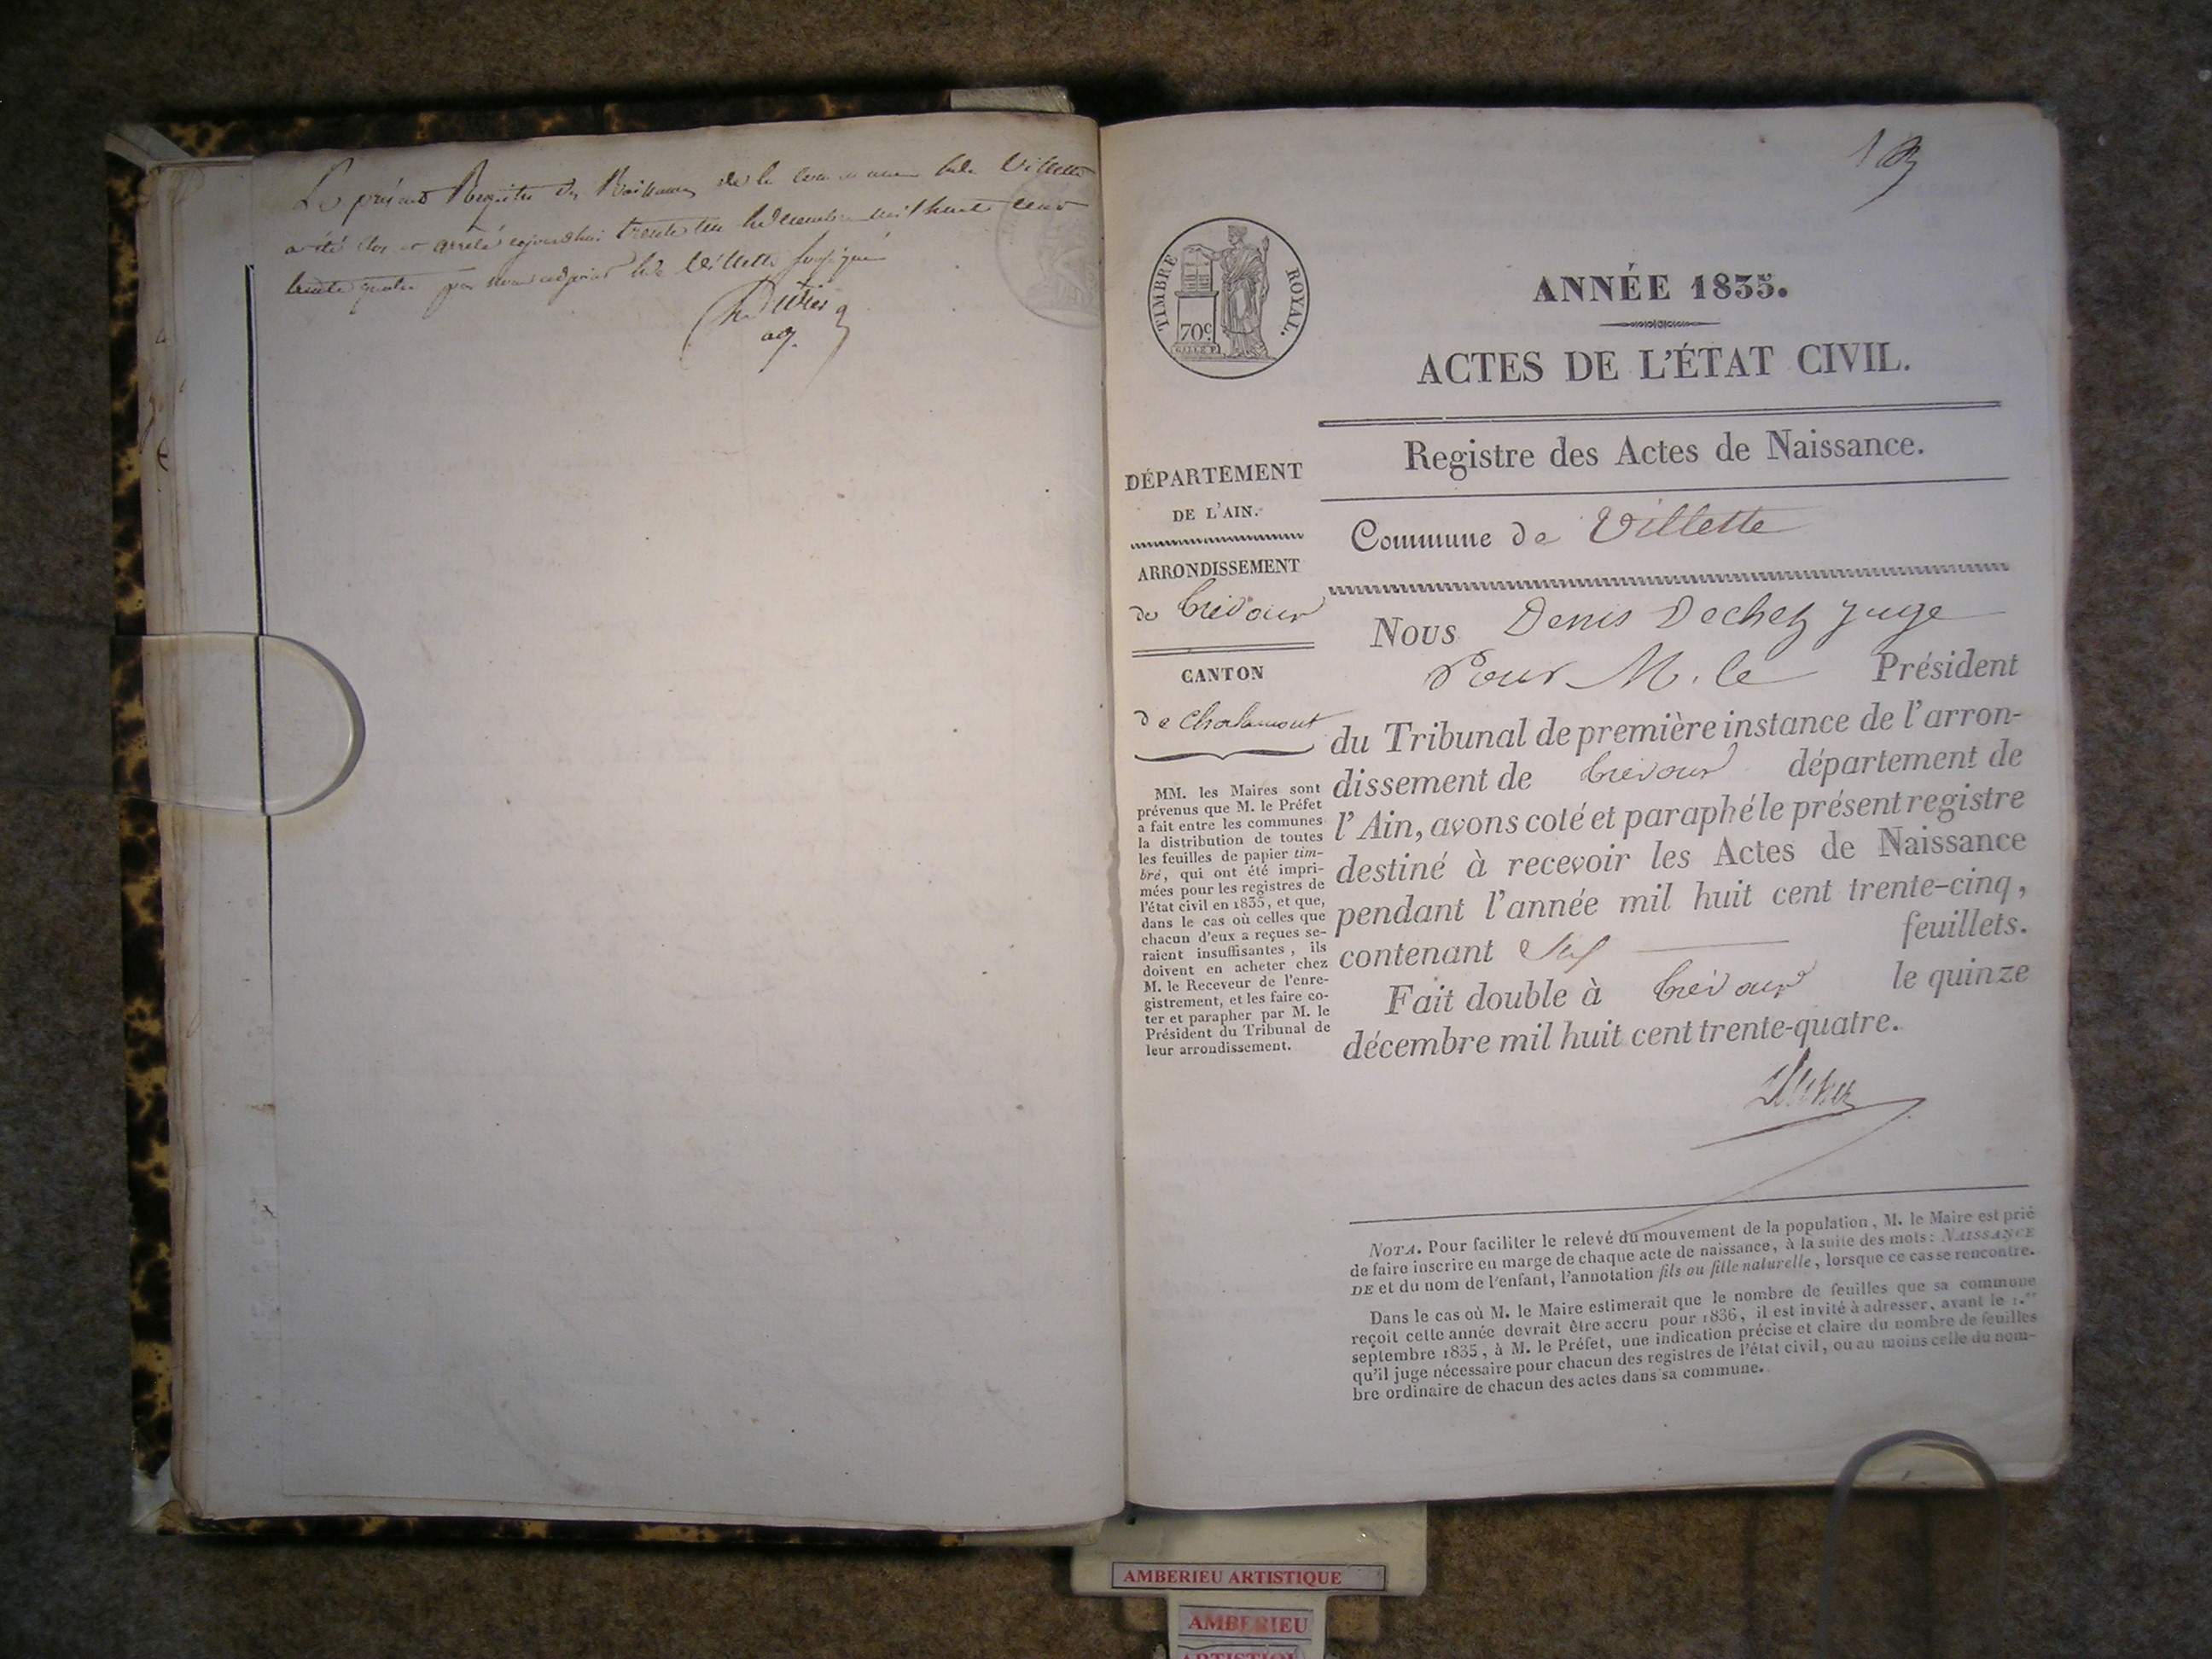 Le présent Registre des Naissances de la commune de Villette
a été clos et arrêté aujourd'hui trente un décembre mil huit cent
trente quatre par nous adjoint de Villette soussigné
adj.
TIMBRE ROYAL.
70c
ANNÉE 1835.
ACTES DE L'ÉTAT CIVIL.
Registre des Actes de Naissance.
Commune de Villette
DÉPARTEMENT
DE L'AIN.
ARRONDISSEMENT
de Trévoux
CANTON
de Chalamont
MM. les Maires sont
prévenus que M. le Préfet
a fait entre les communes
la distribution de toutes
les feuilles de papier tim-
bré, qui ont été impri-
mées pour les registres de
l'état civil en 1835, et que,
dans le cas où celles que
chacun d'eux a reçues se-
raient insuffisantes, ils
doivent en acheter chez
M. le Receveur de l'enre-
gistrement, et les faire co-
ter et parapher par M. le
Président du Tribunal de
leur arrondissement.
Nous Denis Dechez juge
Pour M. le Président
du Tribunal de première instance de l'arron-
dissement de Trévoux département de
l'Ain, avons coté et paraphé le présent registre
destiné à recevoir les Actes de Naissance
pendant l'année mil huit cent trente-cinq,
contenant Six feuillets.
Fait double à Trévoux le quinze
décembre mil huit cent trente-quatre.
Dechez
NOTA. Pour faciliter le relevé du mouvement de la population, M. le Maire est prié
de faire inscrire en marge de chaque acte de naissance, à la suite des mots: NAISSANCE
DE et du nom de l'enfant, l'annotation fils ou fille naturelle, lorsque ce cas se rencontre.
Dans le cas où M. le Maire estimerait que le nombre de feuilles que sa commune
reçoit cette année devrait être accru pour 1836, il est invité à adresser, avant le 1.er
septembre 1835, à M. le Préfet, une indication précise et claire du nombre de feuilles
qu'il juge nécessaire pour chacun des registres de l'état civil, ou au moins celle du nom-
bre ordinaire de chacun des actes dans sa commune.
AMBERIEU ARTISTIQUE
AMBERIEU
ARTISTIQUE